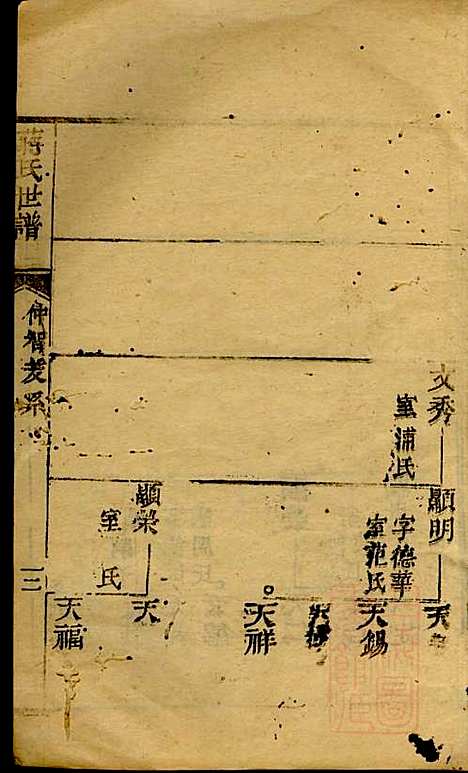 文秀
室浦氏
顯明
字德華
室范氏
天
天錫
天
天祥
顯榮
室 氏
天
天福
蔣氏世譜
仲智支系